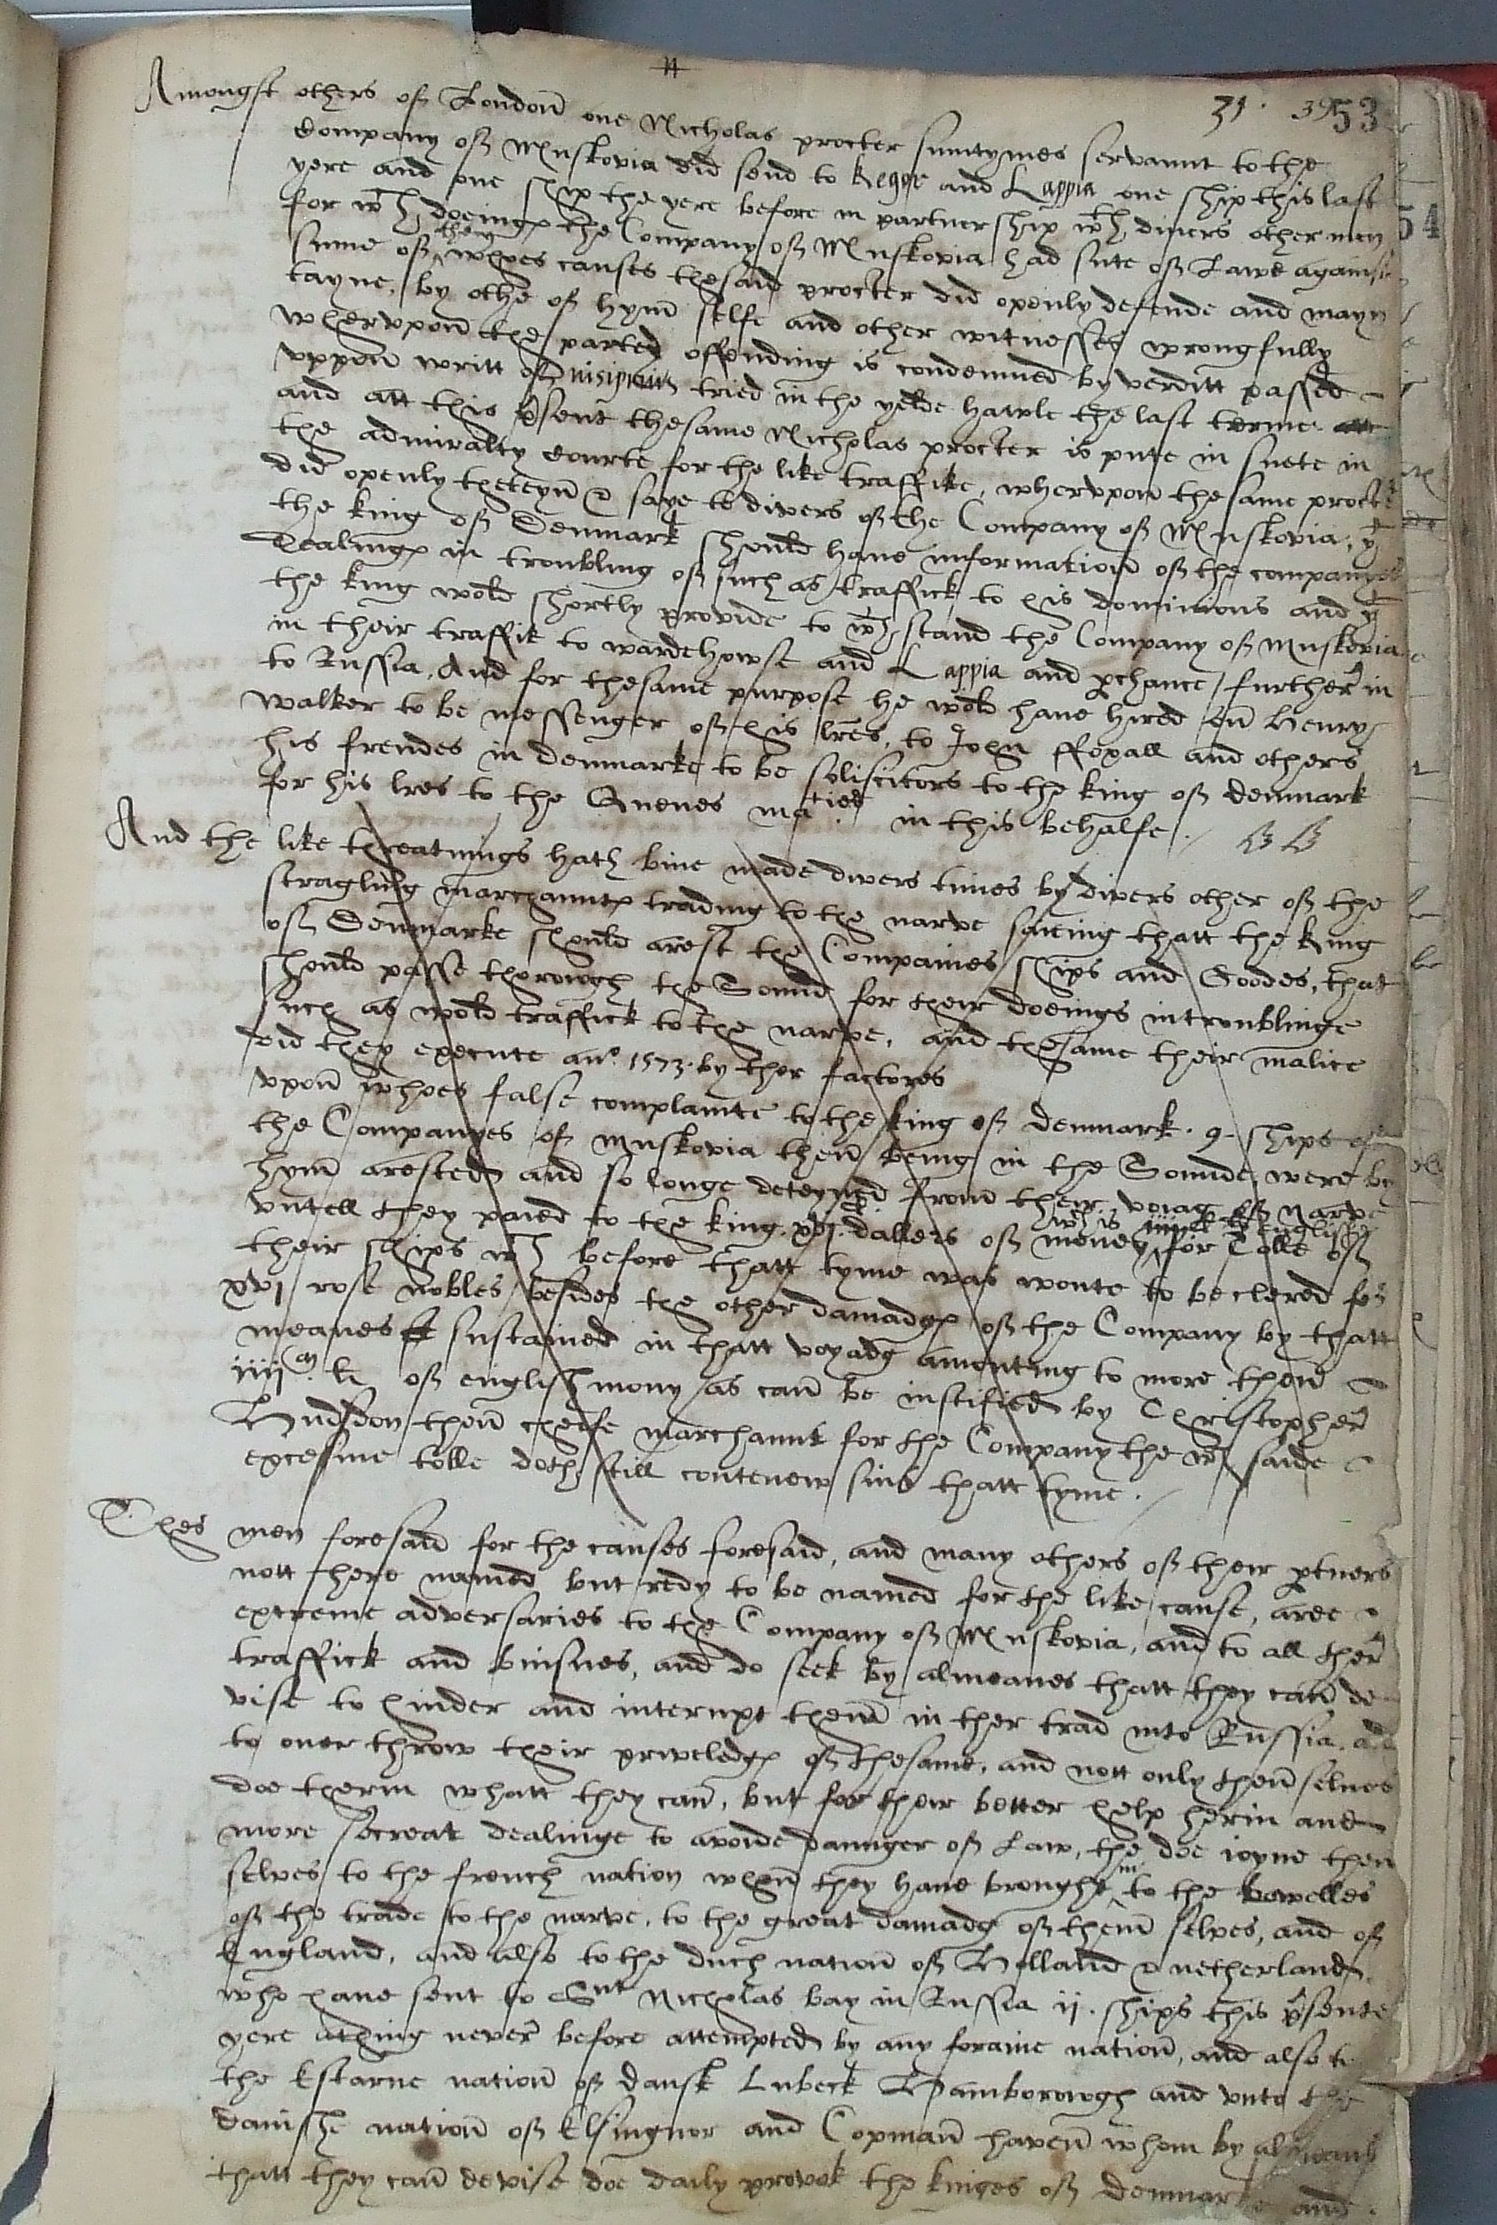 31. 39 53
Amongst others of Londoñ one Nicholas procter sumtymes servaunt to the
Company of Muskovia did send to Kegge and Lappia one ship this last
yere and one ship the yere before in partnership wth divers other men
for wch doeinges the Company of Muskovia had sute of Lawe against
some of them whoes causes thesaid procter did openly defende and mayn
tayne, by othe of hym̃ selfe and other witnesses wrongfully
whervpoñ the parties offending is condemned by verditt passed
vppoñ writt of nisiprius tried in the yelde hawle the last terme
and att this p̃sent thesame Nicholas procter is pute in suete in
the admiralty courte for the like traffike, whervpoñ thesame procter
did openly theteyñ & saye to divers of the Company of Muskovia, yt
the king of Denmark should have informatioñ of the companyes
dealinges in troubling of such as traffick to his dominions and yt
the king wold shortly provide to wthstand the Company of Muskovia
in their traffik to wardehowse and Lappia and p̃chance further in
to Russia. And for thesame purpose he wold have hired oñ Henry
walker to be messenger of his lr̃es, to John ffoxall and others
his frendes in denmarke to be soliscitors to the king of denmark
for his lres to the Quenes maties in this behalfe.
And the like threatnings hath bine made divers times by divers other of the
stragling marchauntes trading to the narve saieing thatt the king
of Denmarke should arest the Companies ships and Goodes, that
should passe thorowgh the Sound for their doeings in troublinge
such as wold traffick to the narve, and thesame their malice
did they execute ano. 1573. by ther factores
vpoñ whoes false complainte to the king of denmark. 9. ships of
the Companyes of muskovia theñ being in the Sounde were by
hym̃ arested and so longe deteyned from their voiag of narve
vntell they paied to the king. xvj. dallers of money wch is englishe for Tolle of
their ships wch before thatt tyme was wonte to be clered for
xvj rose nobles besides the other damadges of the Company by thatt
meanes sustained in thatt voyadg amonting to more theñ
iiijm. li of english mony as cañ be iustified by Christopher
Hudsdon theñ cheife marchaunt for the Company the wch saide
excessive tolle doth still contenew sins thatt tyme.
Thes men foresaid for the causes foresaid, and many others of their p̃tners
nott here named but redy to be named for the like cause, aree
extreme adversaries to the Company of Muskovia, and to all ther
traffick and buisnes, and do seek by almeanes thatt they cañ de
vise to hinder and interrupt them̃ in ther trad into Russia, and
to over throw their priveledges of thesame, and nott only them̃ selves
doe therin whatt they cañ, but for their better help herin and
more secreat dealinge to avoide daunger of Law, the doe ioyne them
selves to the french nation whom̃ they have brought in to the bowelles
of the trade to the narve, to the great damadg of them̃ selves, and of
England, and also to the duch natioñ of Holland & netherland,
who have sent to Snt Nicholas bay in Russia ij. ships this p̃sente
yere a thing never before attempted by any foraine natioñ, and also to
the Estarne natioñ of dansk Lubeck Hamborowgh and vnto the
danishe natioñ of Elsingnor and Copmañ haveñ whom by almeans
thatt they cañ devise doe daily provok the kinges of denmarke and